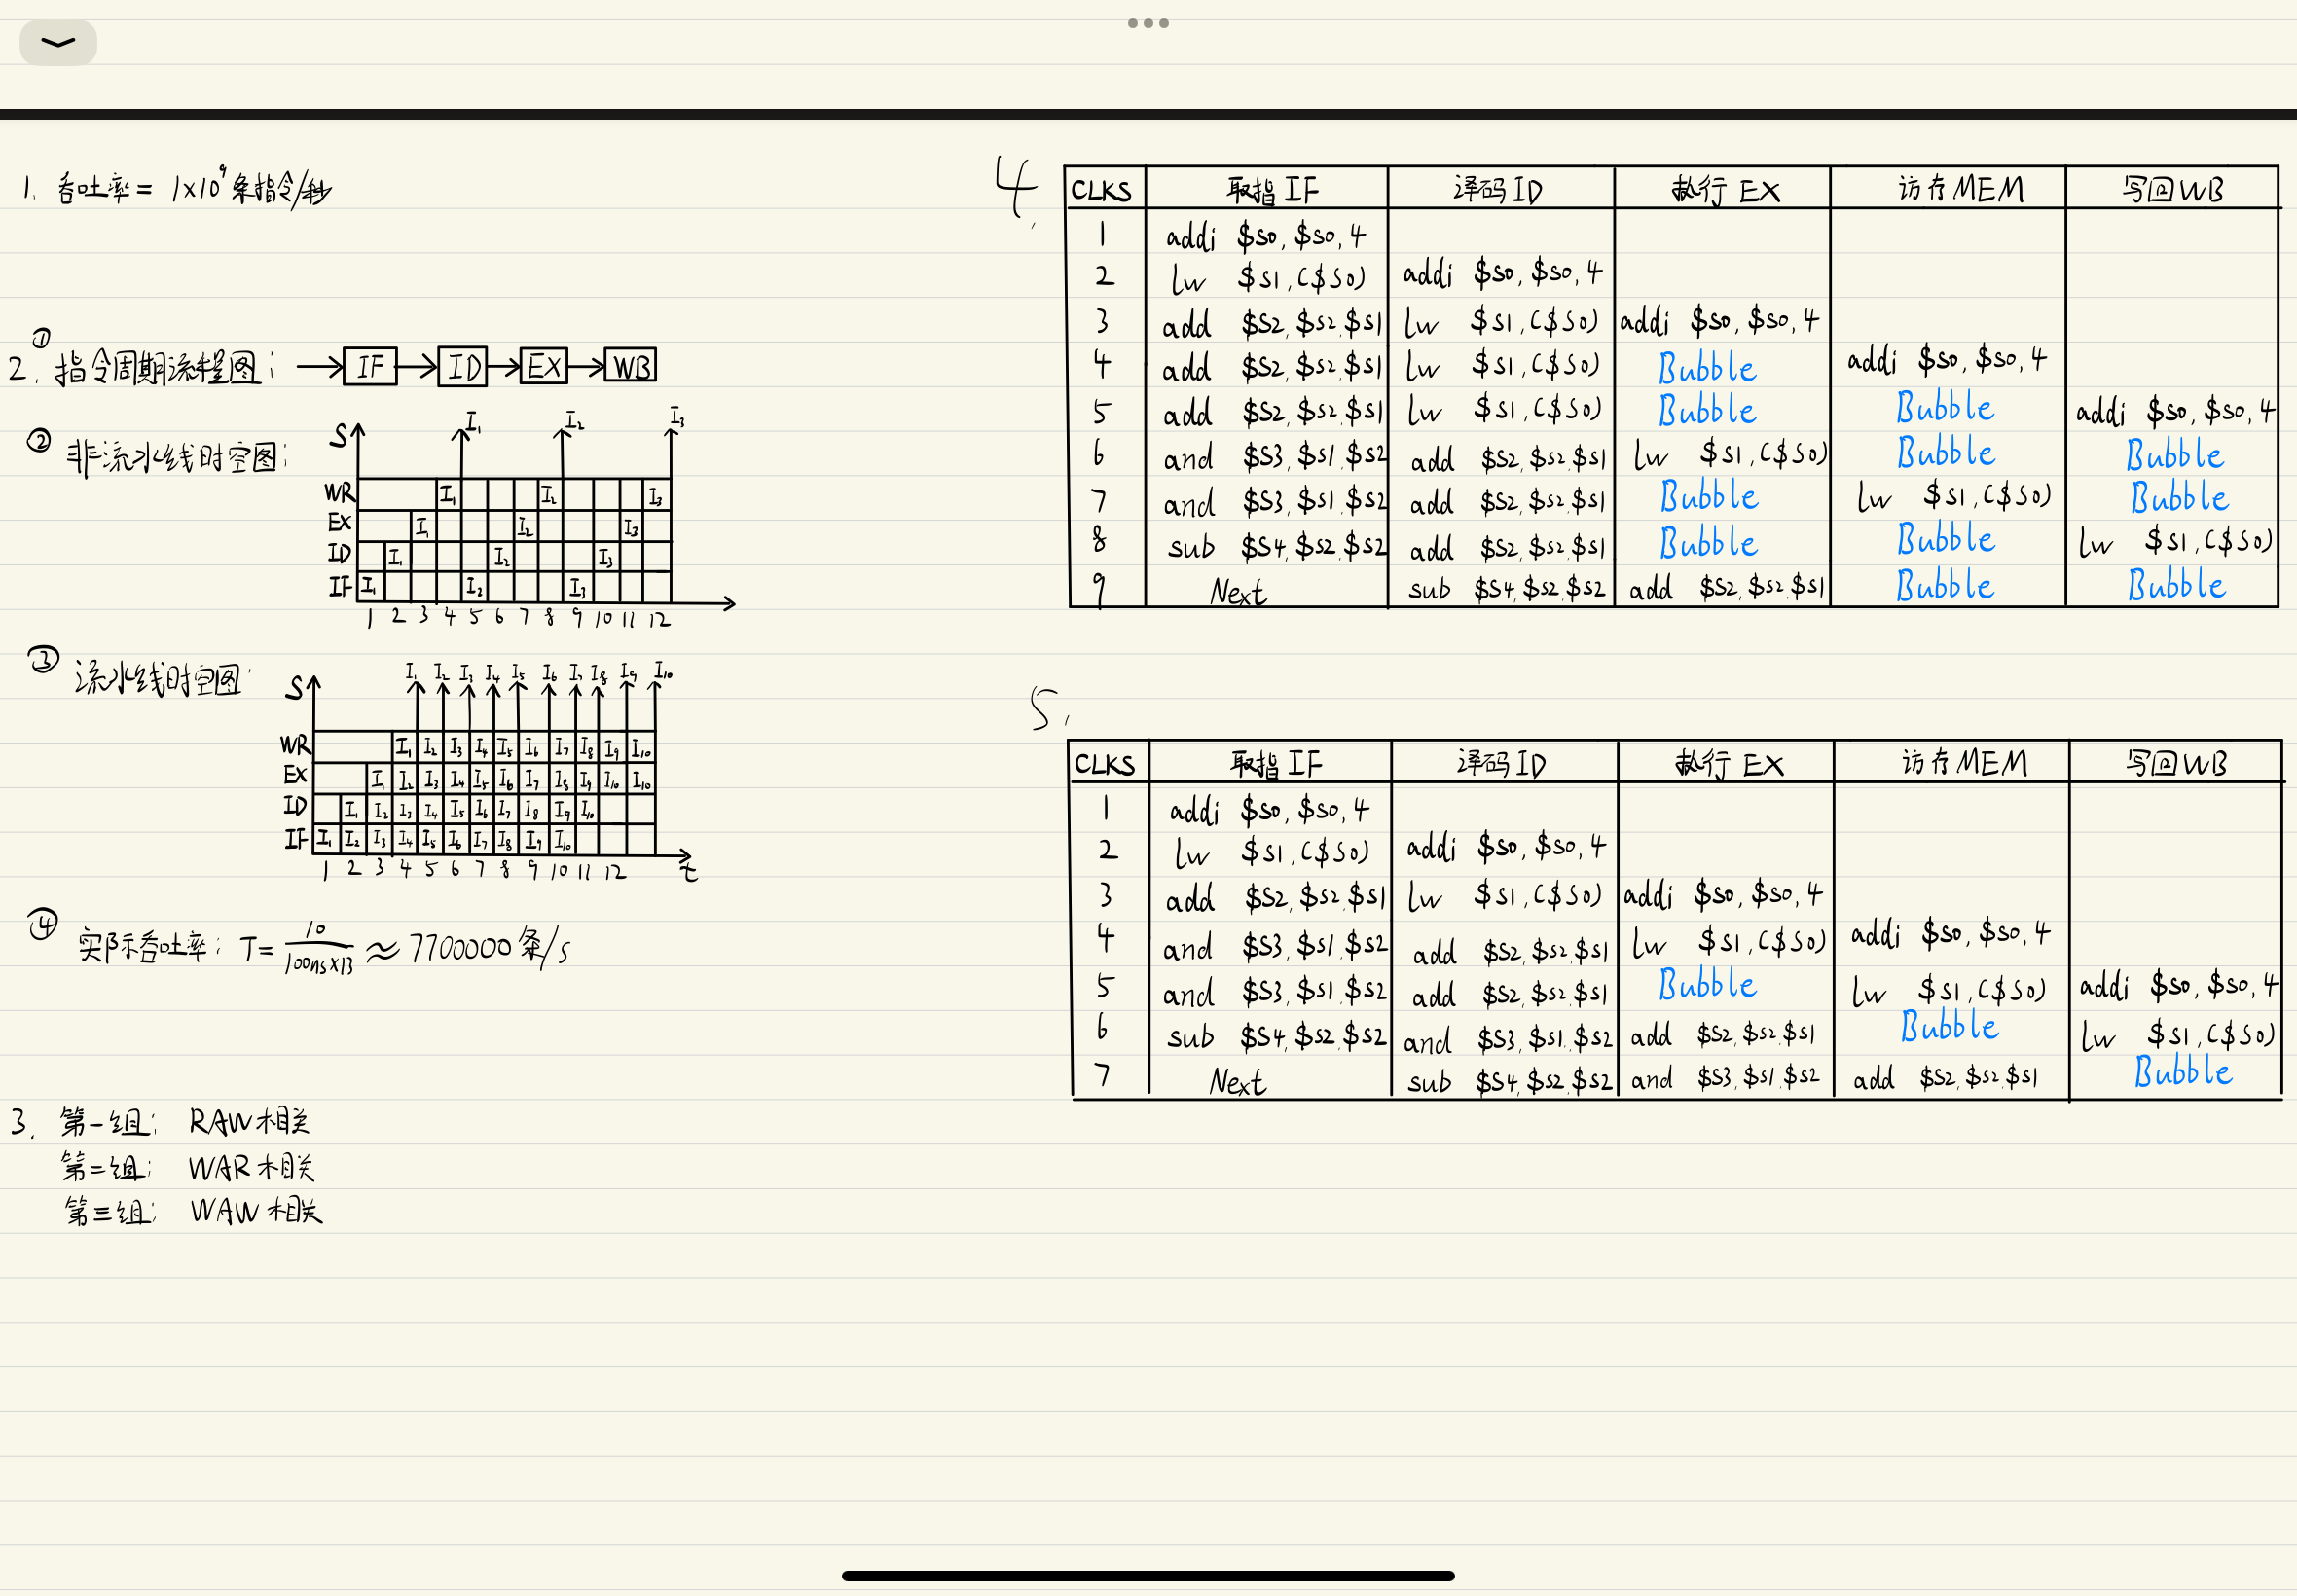 1. 吞吐率 = 1×10⁹条指令/秒
2. ① 指令周期流程图: → IF → ID → EX → WB
② 非流水线时空图:
S I₁ I₂ I₃
WR I₁ I₂ I₃
EX I₁ I₂ I₃
ID I₁ I₂ I₃
IF I₁ I₂ I₃
1 2 3 4 5 6 7 8 9 10 11 12
③ 流水线时空图:
S I₁ I₂ I₃ I₄ I₅ I₆ I₇ I₈ I₉ I₁₀
WR I₁ I₂ I₃ I₄ I₅ I₆ I₇ I₈ I₉ I₁₀
EX I₁ I₂ I₃ I₄ I₅ I₆ I₇ I₈ I₉ I₁₀ I₁₀
ID I₁ I₂ I₃ I₄ I₅ I₆ I₇ I₈ I₉ I₁₀
IF I₁ I₂ I₃ I₄ I₅ I₆ I₇ I₈ I₉ I₁₀
1 2 3 4 5 6 7 8 9 10 11 12 t
④ 实际吞吐率: T = 10/(100ns×13) ≈ 7700000条/s
3. 第一组: RAW相关
第二组: WAR相关
第三组: WAW相关
4.
CLKS 取指IF 译码ID 执行EX 访存MEM 写回WB
1 addi $s0, $s0, 4
2 lw $s1, ($s0) addi $s0, $s0, 4
3 add $s2, $s2, $s1 lw $s1, ($s0) addi $s0, $s0, 4
4 add $s2, $s2, $s1 lw $s1, ($s0) Bubble addi $s0, $s0, 4
5 add $s2, $s2, $s1 lw $s1, ($s0) Bubble Bubble addi $s0, $s0, 4
6 and $s3, $s1, $s2 add $s2, $s2, $s1 lw $s1, ($s0) Bubble Bubble
7 and $s3, $s1, $s2 add $s2, $s2, $s1 Bubble lw $s1, ($s0) Bubble
8 sub $s4, $s2, $s2 add $s2, $s2, $s1 Bubble Bubble lw $s1, ($s0)
9 Next sub $s4, $s2, $s2 add $s2, $s2, $s1 Bubble Bubble
5.
CLKS 取指IF 译码ID 执行EX 访存MEM 写回WB
1 addi $s0, $s0, 4
2 lw $s1, ($s0) addi $s0, $s0, 4
3 add $s2, $s2, $s1 lw $s1, ($s0) addi $s0, $s0, 4
4 and $s3, $s1, $s2 add $s2, $s2, $s1 lw $s1, ($s0) addi $s0, $s0, 4
5 and $s3, $s1, $s2 add $s2, $s2, $s1 Bubble lw $s1, ($s0) addi $s0, $s0, 4
6 sub $s4, $s2, $s2 and $s3, $s1, $s2 add $s2, $s2, $s1 Bubble lw $s1, ($s0)
7 Next sub $s4, $s2, $s2 and $s3, $s1, $s2 add $s2, $s2, $s1 Bubble